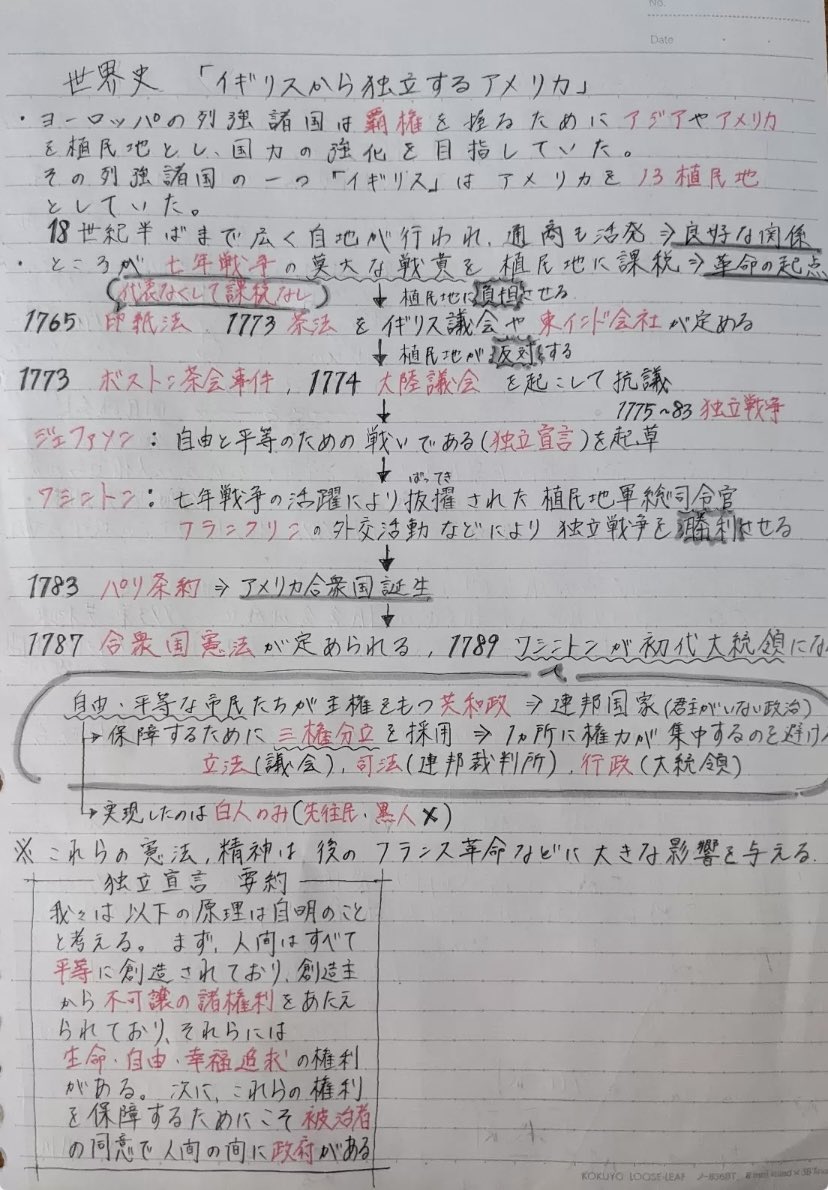 No.
Date
世界史 「イギリスから独立するアメリカ」
・ヨーロッパの列強諸国は覇権を握るためにアジアやアメリカ
を植民地とし、国力の強化を目指していた。
その列強諸国の一つ「イギリス」はアメリカを13植民地
としていた。
18世紀半ばまで広く自地が行われ、通商も活発⇒良好な関係
・ところが七年戦争の莫大な戦費を植民地に課税⇒革命の起点
(代表なくして課税なし) ↓植民地に負担させる
1765 印紙法 1773 茶法をイギリス議会や東インド会社が定める
↓植民地が反対する
1773 ボストン茶会事件, 1774 大陸議会 を起こして抗議
↓ 1775~83 独立戦争
ジェファソン: 自由と平等のための戦いである(独立宣言)を起草
↓ ばってき
ワシントン: 七年戦争の活躍により抜擢された植民地軍総司令官
フランクリンの外交活動などにより独立戦争を勝利させる
↓
1783 パリ条約⇒アメリカ合衆国誕生
↓
1787 合衆国憲法が定められる, 1789 ワシントンが初代大統領にな
自由・平等な市民たちが主権をもつ共和政⇒連邦国家(君主がいない政治)
↳保障するために三権分立を採用⇒1ヵ所に権力が集中するのを避け
立法(議会), 司法(連邦裁判所), 行政(大統領)
↳実現したのは白人のみ(先住民・黒人×)
※これらの憲法,精神は後のフランス革命などに大きな影響を与える.
独立宣言 要約
我々は以下の原理は自明のこと
と考える。まず、人間はすべて
平等に創造されており、創造主
から不可譲の諸権利をあたえ
られており、それらには
生命・自由・幸福追求の権利
がある。次に、これらの権利
を保障するためにこそ被治者
の同意で人間の間に政府がある
KOKUYO LOOSE-LEAF ノ-836BT